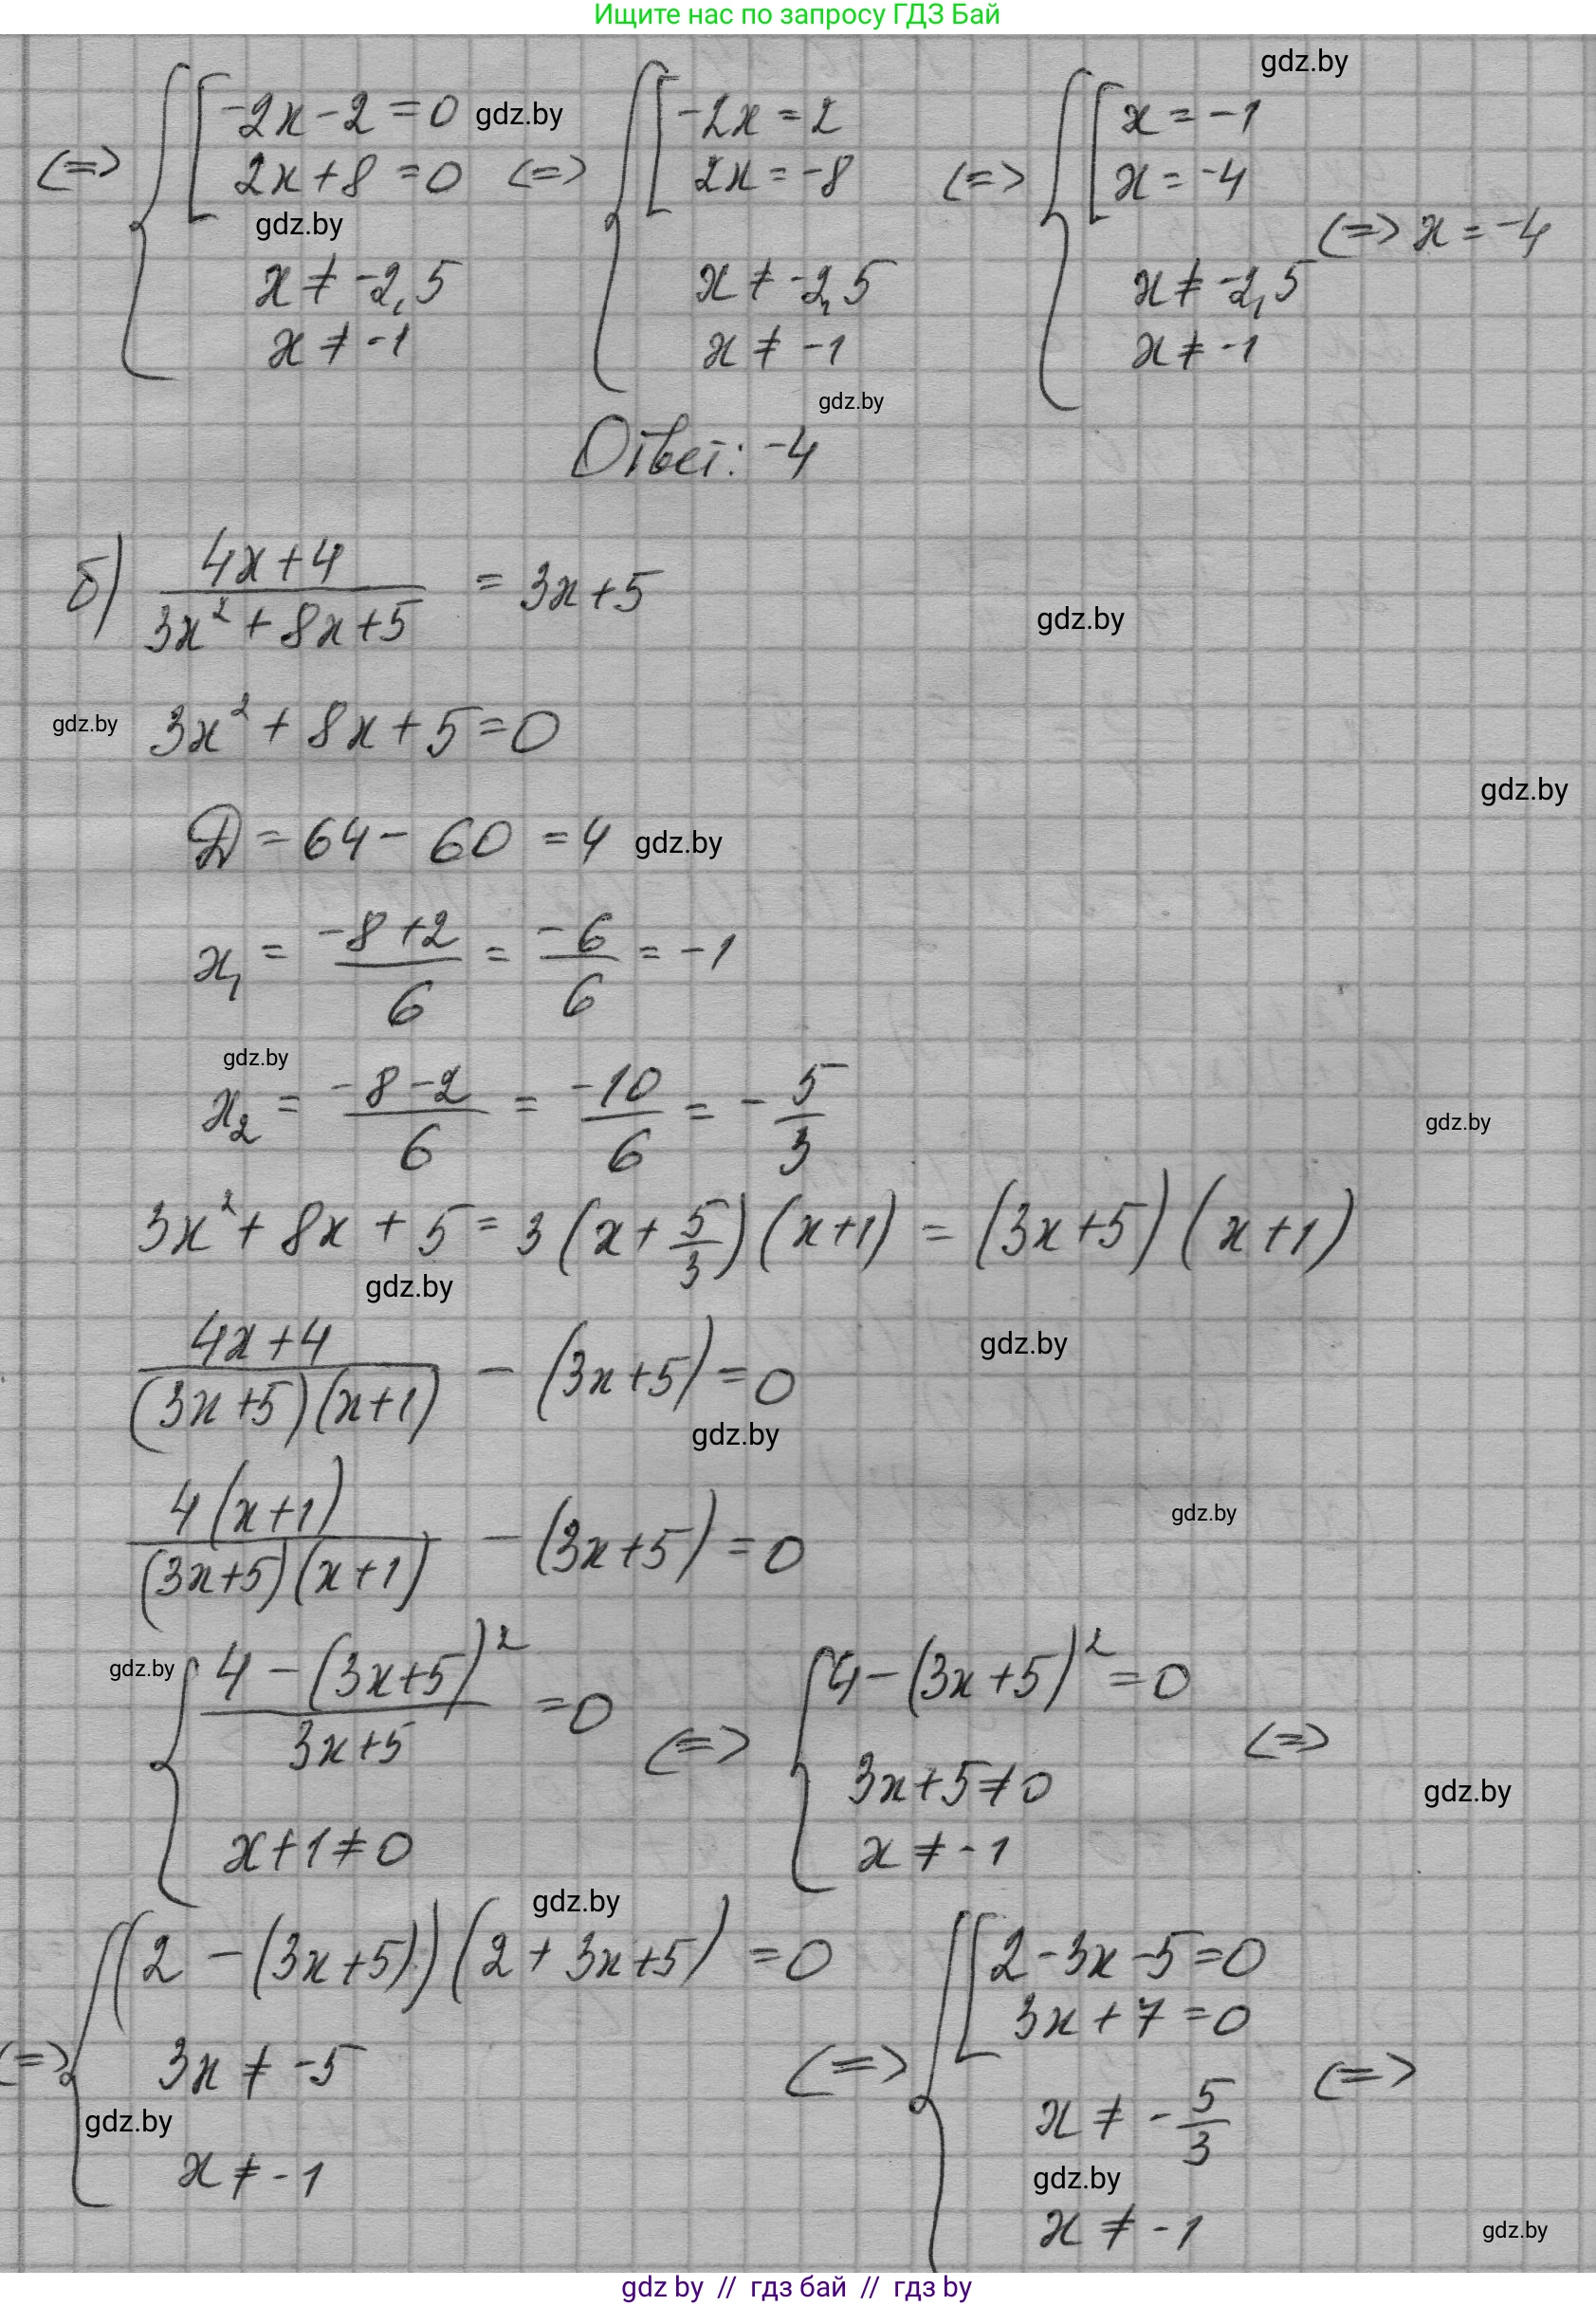 Ищите нас по запросу ГДЗ Бай
gdz.by
<=> { [ -2x-2=0 gdz.by <=> { [ -2x=2 <=> { [ x=-1
2x+8=0 2x=-8 x=-4
gdz.by <=> x=-4
x≠-2,5 x≠-2,5 x≠-2,5
x≠-1 x≠-1 x≠-1
gdz.by
Ответ: -4
б) (4x+4)/(3x²+8x+5) = 3x+5
gdz.by
gdz.by 3x²+8x+5=0
gdz.by
D=64-60=4 gdz.by
x₁ = (-8+2)/6 = -6/6 = -1
gdz.by
x₂ = (-8-2)/6 = -10/6 = -5/3
gdz.by
3x²+8x+5=3(x+5/3)(x+1)=(3x+5)(x+1)
gdz.by
(4x+4)/((3x+5)(x+1)) - (3x+5)=0
gdz.by
gdz.by
4(x+1)/((3x+5)(x+1)) - (3x+5)=0
gdz.by
gdz.by { (4-(3x+5)²)/(3x+5) =0 <=> { 4-(3x+5)²=0 <=>
3x+5≠0
gdz.by
x+1≠0 x≠-1
gdz.by
<=> { (2-(3x+5))(2+3x+5)=0 <=> { [ 2-3x-5=0 <=>
3x+7=0
3x≠-5 x≠-5/3
gdz.by
x≠-1 gdz.by
x≠-1
gdz.by
gdz by // гдз бай // гдз by